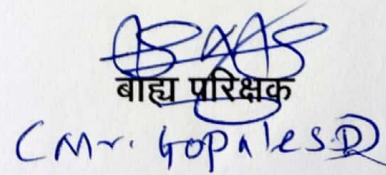 बाह्य परिक्षक
(Mr. Gopales D)